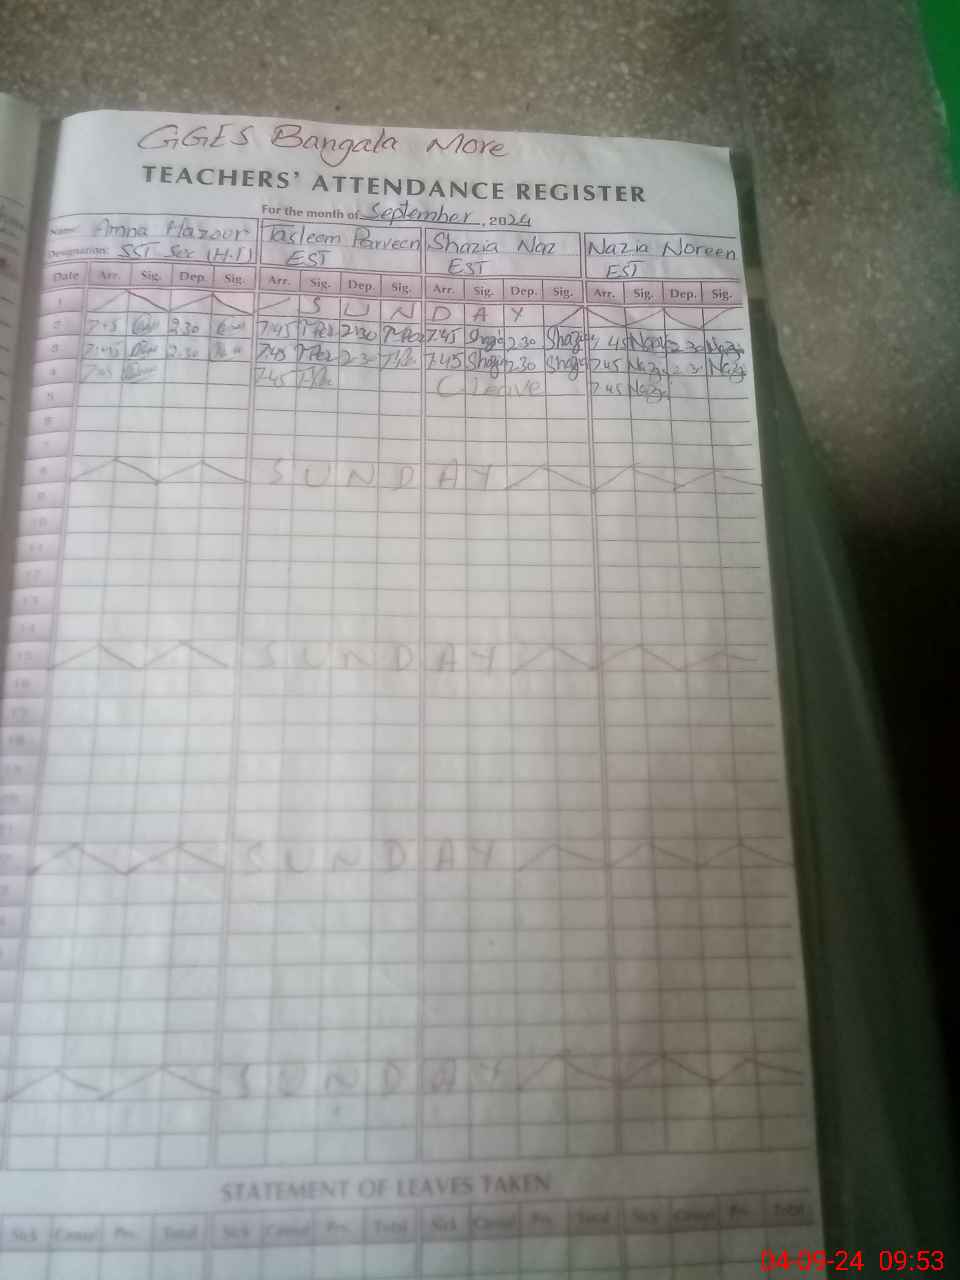 GGES Bangala More
TEACHERS' ATTENDANCE REGISTER
For the month of September, 2024
Name: Amna Hazoor Tasleem Parveen Shazia Naz Nazia Noreen
Designation: SST Sci (H.T) EST EST EST
Date Arr. Sig. Dep. Sig. Arr. Sig. Dep. Sig. Arr. Sig. Dep. Sig. Arr. Sig. Dep. Sig.
1 SUNDAY
2 7:45 2.30 7:45 T.Per 2:30 T.Per 7.45 Shazia 2.30 Shazia 7.45 Nazia 2.30 Nazia
3 7:45 2.30 7:45 T.Per 2:30 7.45 Shazia 2.30 Shazia 7.45 Nazia 2.30 Nazia
4 7:45 7:45 C Leave 7.45 Nazia
5
6
7
8 SUNDAY
9
10
11
12
13
14
15 SUNDAY
16
17
18
19
20
21
SUNDAY
SUNDAY
STATEMENT OF LEAVES TAKEN
Sick Casual Prv. Total Sick Casual Prv. Total Sick Casual Prv. Total Sick Casual Prv. Total
04-09-24 09:53